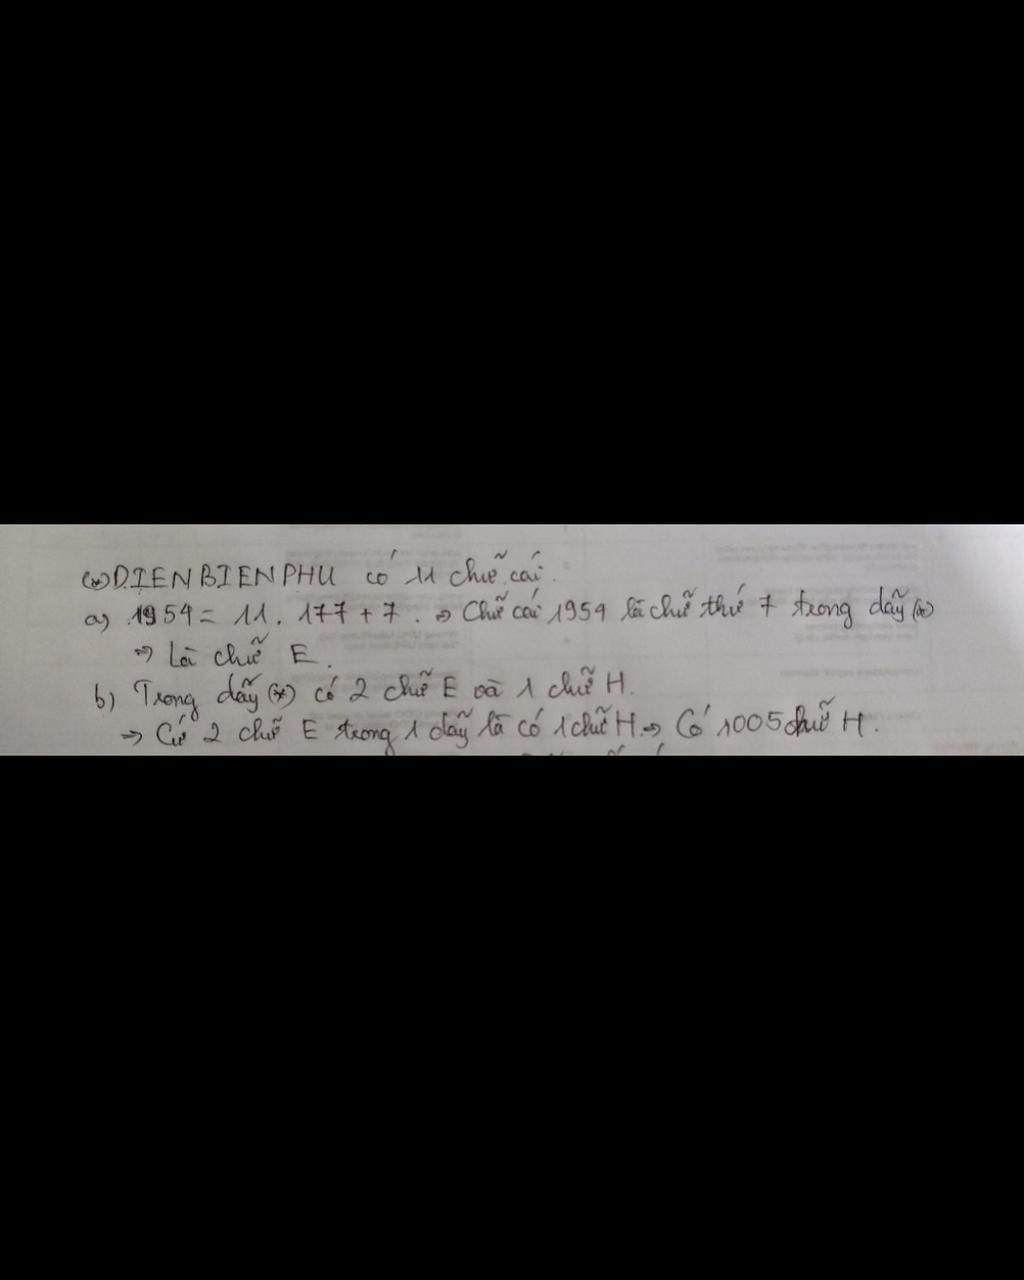 (*) DIENBIENPHU có 11 chữ cái.
a) 1954 = 11 . 177 + 7 . => Chữ cái 1954 là chữ thứ 7 trong dãy (*)
=> Là chữ E.
b) Trong dãy (*) có 2 chữ E và 1 chữ H.
=> Cứ 2 chữ E trong 1 dãy là có 1 chữ H => Có 1005 chữ H.